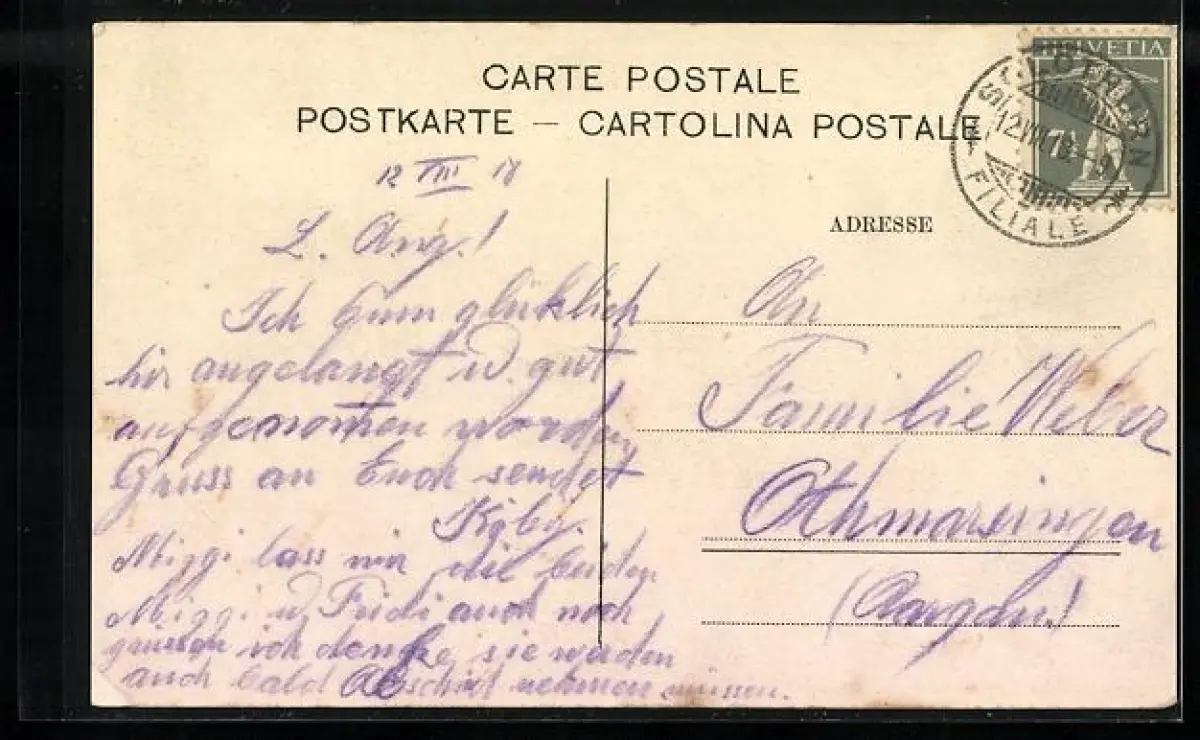 CARTE POSTALE
POSTKARTE – CARTOLINA POSTALE
HELVETIA
7½
FILIALE
12 VIII 18
L. Ang!
Ich bum glücklich
hir angelangt u. gut
aufgenommen worden
Gruss an Euch sendet
Miggi lass mir die beiden
Miggi u. Fridi auch noch
grüssen ich denke sie werden
auch bald Abschid nehmen müssen.
ADRESSE
An
Familie Weber
Othmarsingen
(Aargau)